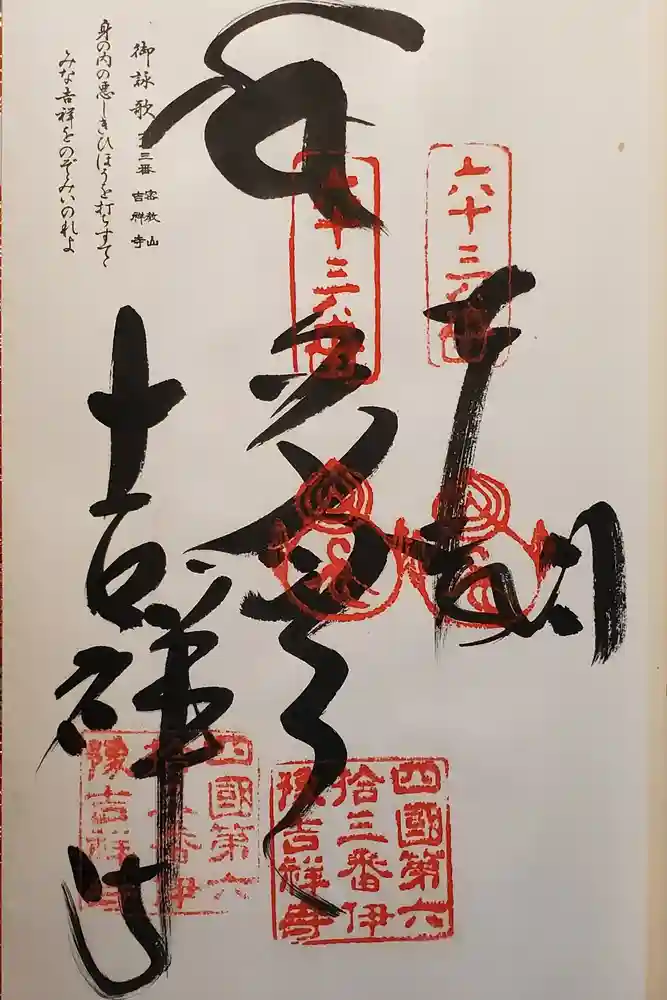 六十三番
六十三番
吉祥寺
四國第六
拾三番伊
豫吉祥寺
四國第六
拾三番伊
豫吉祥寺
御詠歌 三番 密教山 吉祥寺
身の内の悪しきひほうを打ちすてゝ
みな吉祥をのぞみいのれよ